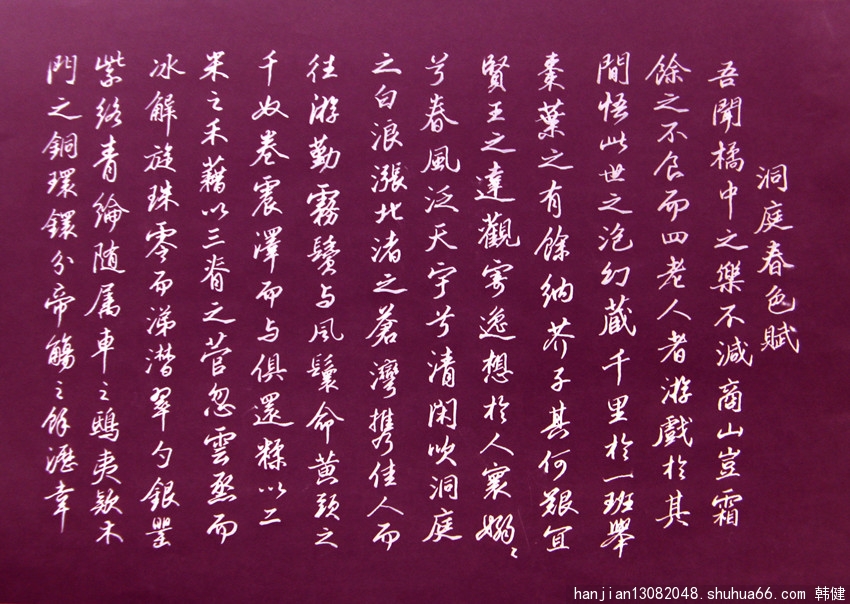 洞庭春色賦
吾聞橘中之樂不減商山豈霜
餘之不食而四老人者游戲於其
間悟此世之泡幻藏千里於一班舉
棗葉之有餘納芥子其何艱宜
賢王之達觀寄逸想於人寰嫋〻
兮春風泛天宇兮清閑吹洞庭
之白浪漲北渚之蒼灣攜佳人而
往游勤霧鬢与風鬟命黄頭之
千奴卷震澤而与俱還糅以二
米之禾藉以三脊之菅忽雲烝而
冰解旋珠零而涕潸翠勺銀罌
紫絡青綸随属車之鴟夷款木
門之銅環鐶分帝觴之餘瀝幸
hanjian13082048.shuhua66.com 韩健